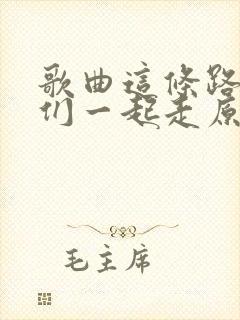 歌曲這條路
们一起走原
毛主席